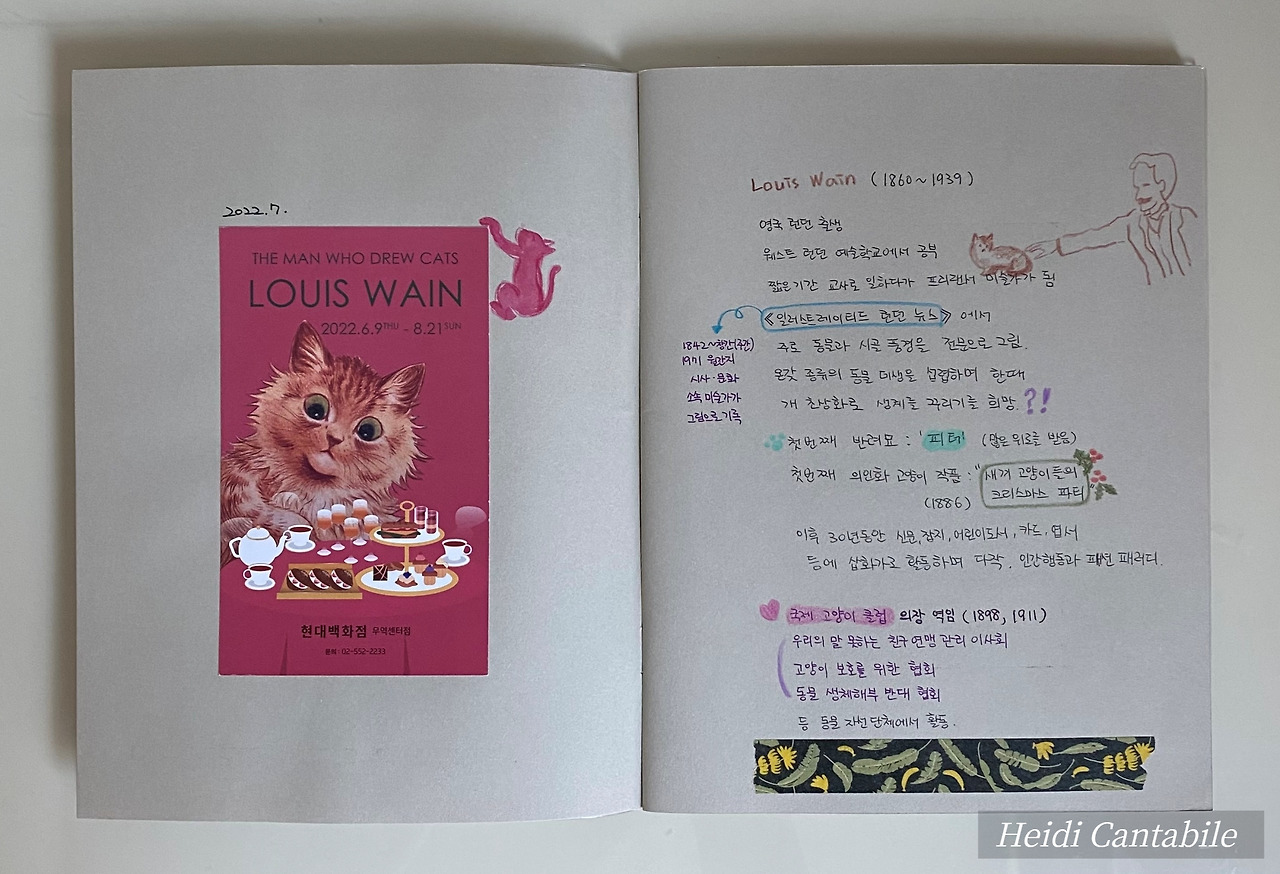 2022.7.
THE MAN WHO DREW CATS
LOUIS WAIN
2022.6.9THU - 8.21SUN
현대백화점 무역센터점
문의 : 02-552-2233
Louis Wain (1860~1939)
영국 런던 출생
웨스트 런던 예술학교에서 공부
짧은기간 교사로 일하다가 프리랜서 미술가가 됨
《일러스트레이티드 런던 뉴스》 에서
1842~창간(주간)
1971 월간지
시사·문화
소속 미술가가
그림으로 기록
주로 동물과 시골 풍경을 전문으로 그림.
온갖 종류의 동물 미생을 섭렵하며 한때
개 초상화로 생계를 꾸리기를 희망?!
첫번째 반려묘 : '피터' (많은 위로를 받음)
첫번째 의인화 고양이 작품 : "새끼 고양이들의
크리스마스 파티"
(1886)
이후 30년동안 신문,잡지,어린이도서,카드,엽서
등에 삽화가로 활동하며 다작. 인간행동과 패션 패러디.
국제 고양이 클럽 의장 역임 (1898, 1911)
우리의 말 못하는 친구 연맹 관리 이사회
고양이 보호를 위한 협회
동물 생체해부 반대 협회
등 동물 자선단체에서 활동.
Heidi Cantabile